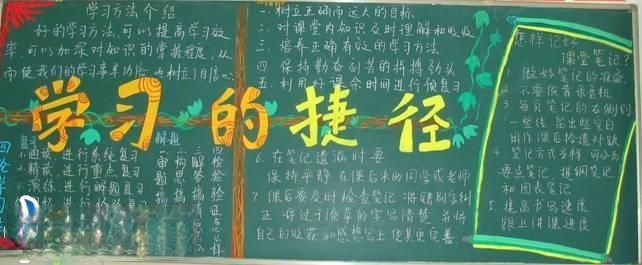 学习方法介绍
好的学习方法,可以提高学习效
率,可以加深对知识的掌握程度,从
而使我们的学习事半功倍,也树立了自信心
一.树立正确而远大的目标
二.对课堂内知识及时理解和吸收
三.培养正确有效的学习方法
四.保持勤奋刻苦的拼搏劲头
五.利用好课余时间进行预复习
学习的捷径
复习
1.回故,进行系统复习
2.精读,进行重点复习
3.演练,进行解题复习
解题
一审题
二构思
三解答
四检验
6.在笔记遗漏时,要
保持平静,在课后来问同学或老师
7.课后要及时检查笔记,将错别字纠
正,将过于潦草的字写清楚,并将
自己的收获和感想写上,使其更完善.
怎样记好
课堂笔记?
1.做好笔记的准备
2.不要做音录音机
3.每页笔记的右侧划
一竖线,留出些空白
用作课后拾遗补缺
4.笔记方式多样,可分为
要点笔记、提纲笔记
和图表笔记
5.提高书写速度
跟上讲课进度